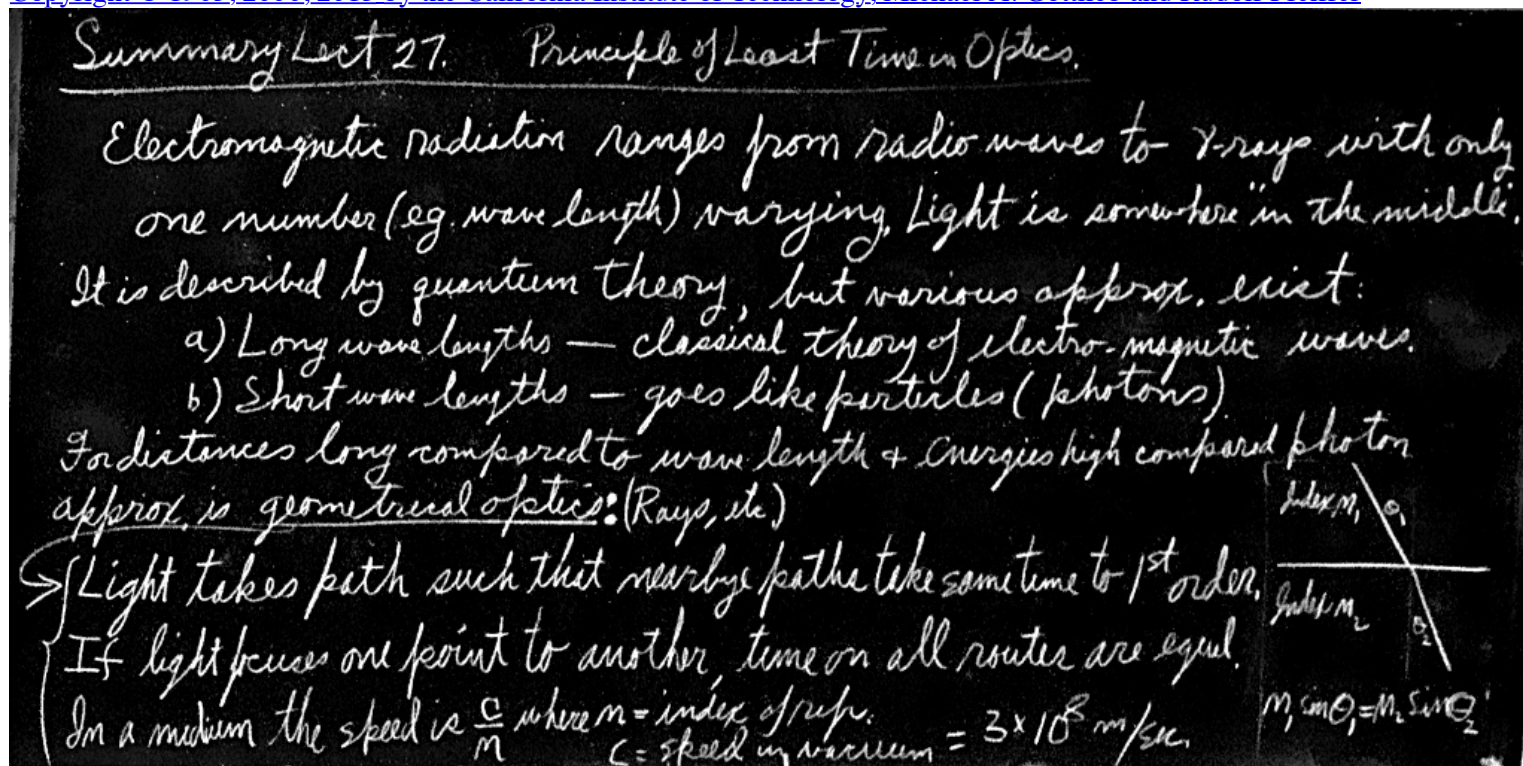 Summary Lect 27. Principle of Least Time in Optics.
Electromagnetic radiation ranges from radio waves to γ-rays with only
one number (eg. wave length) varying. Light is somewhere "in the middle".
It is described by quantum theory, but various approx. exist:
a) Long wave lengths — classical theory of electro-magnetic waves.
b) Short wave lengths — goes like particles (photons)
For distances long compared to wave length & energies high compared photon
approx. is geometrical optics: (Rays, etc.)
Light takes path such that nearbye paths take same time to 1st order.
If light focuses one point to another, time on all routes are equal.
In a medium the speed is c/n where n = index of refr.
c = speed in vacuum = 3×10⁸ m/sec.
Index n₁ θ₁
Index n₂ θ₂
n₁ sinθ₁ = n₂ sinθ₂